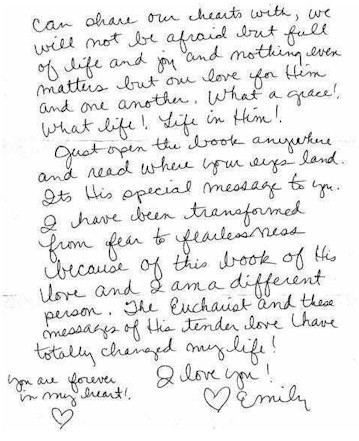 can share our hearts with, we
will not be afraid but full
of life and joy and nothing even
matters but our love for Him
and one another. What a grace!
What life! Life in Him!
Just open the book anywhere
and read where your eyes land.
Its His special message to you.
I have been transformed
from fear to fearlessness
because of this book of His
love and I am a different
person. The Eucharist and these
messages of His tender love have
totally changed my life!
you are forever
in my heart!
I love you!
♡ Emily
♡